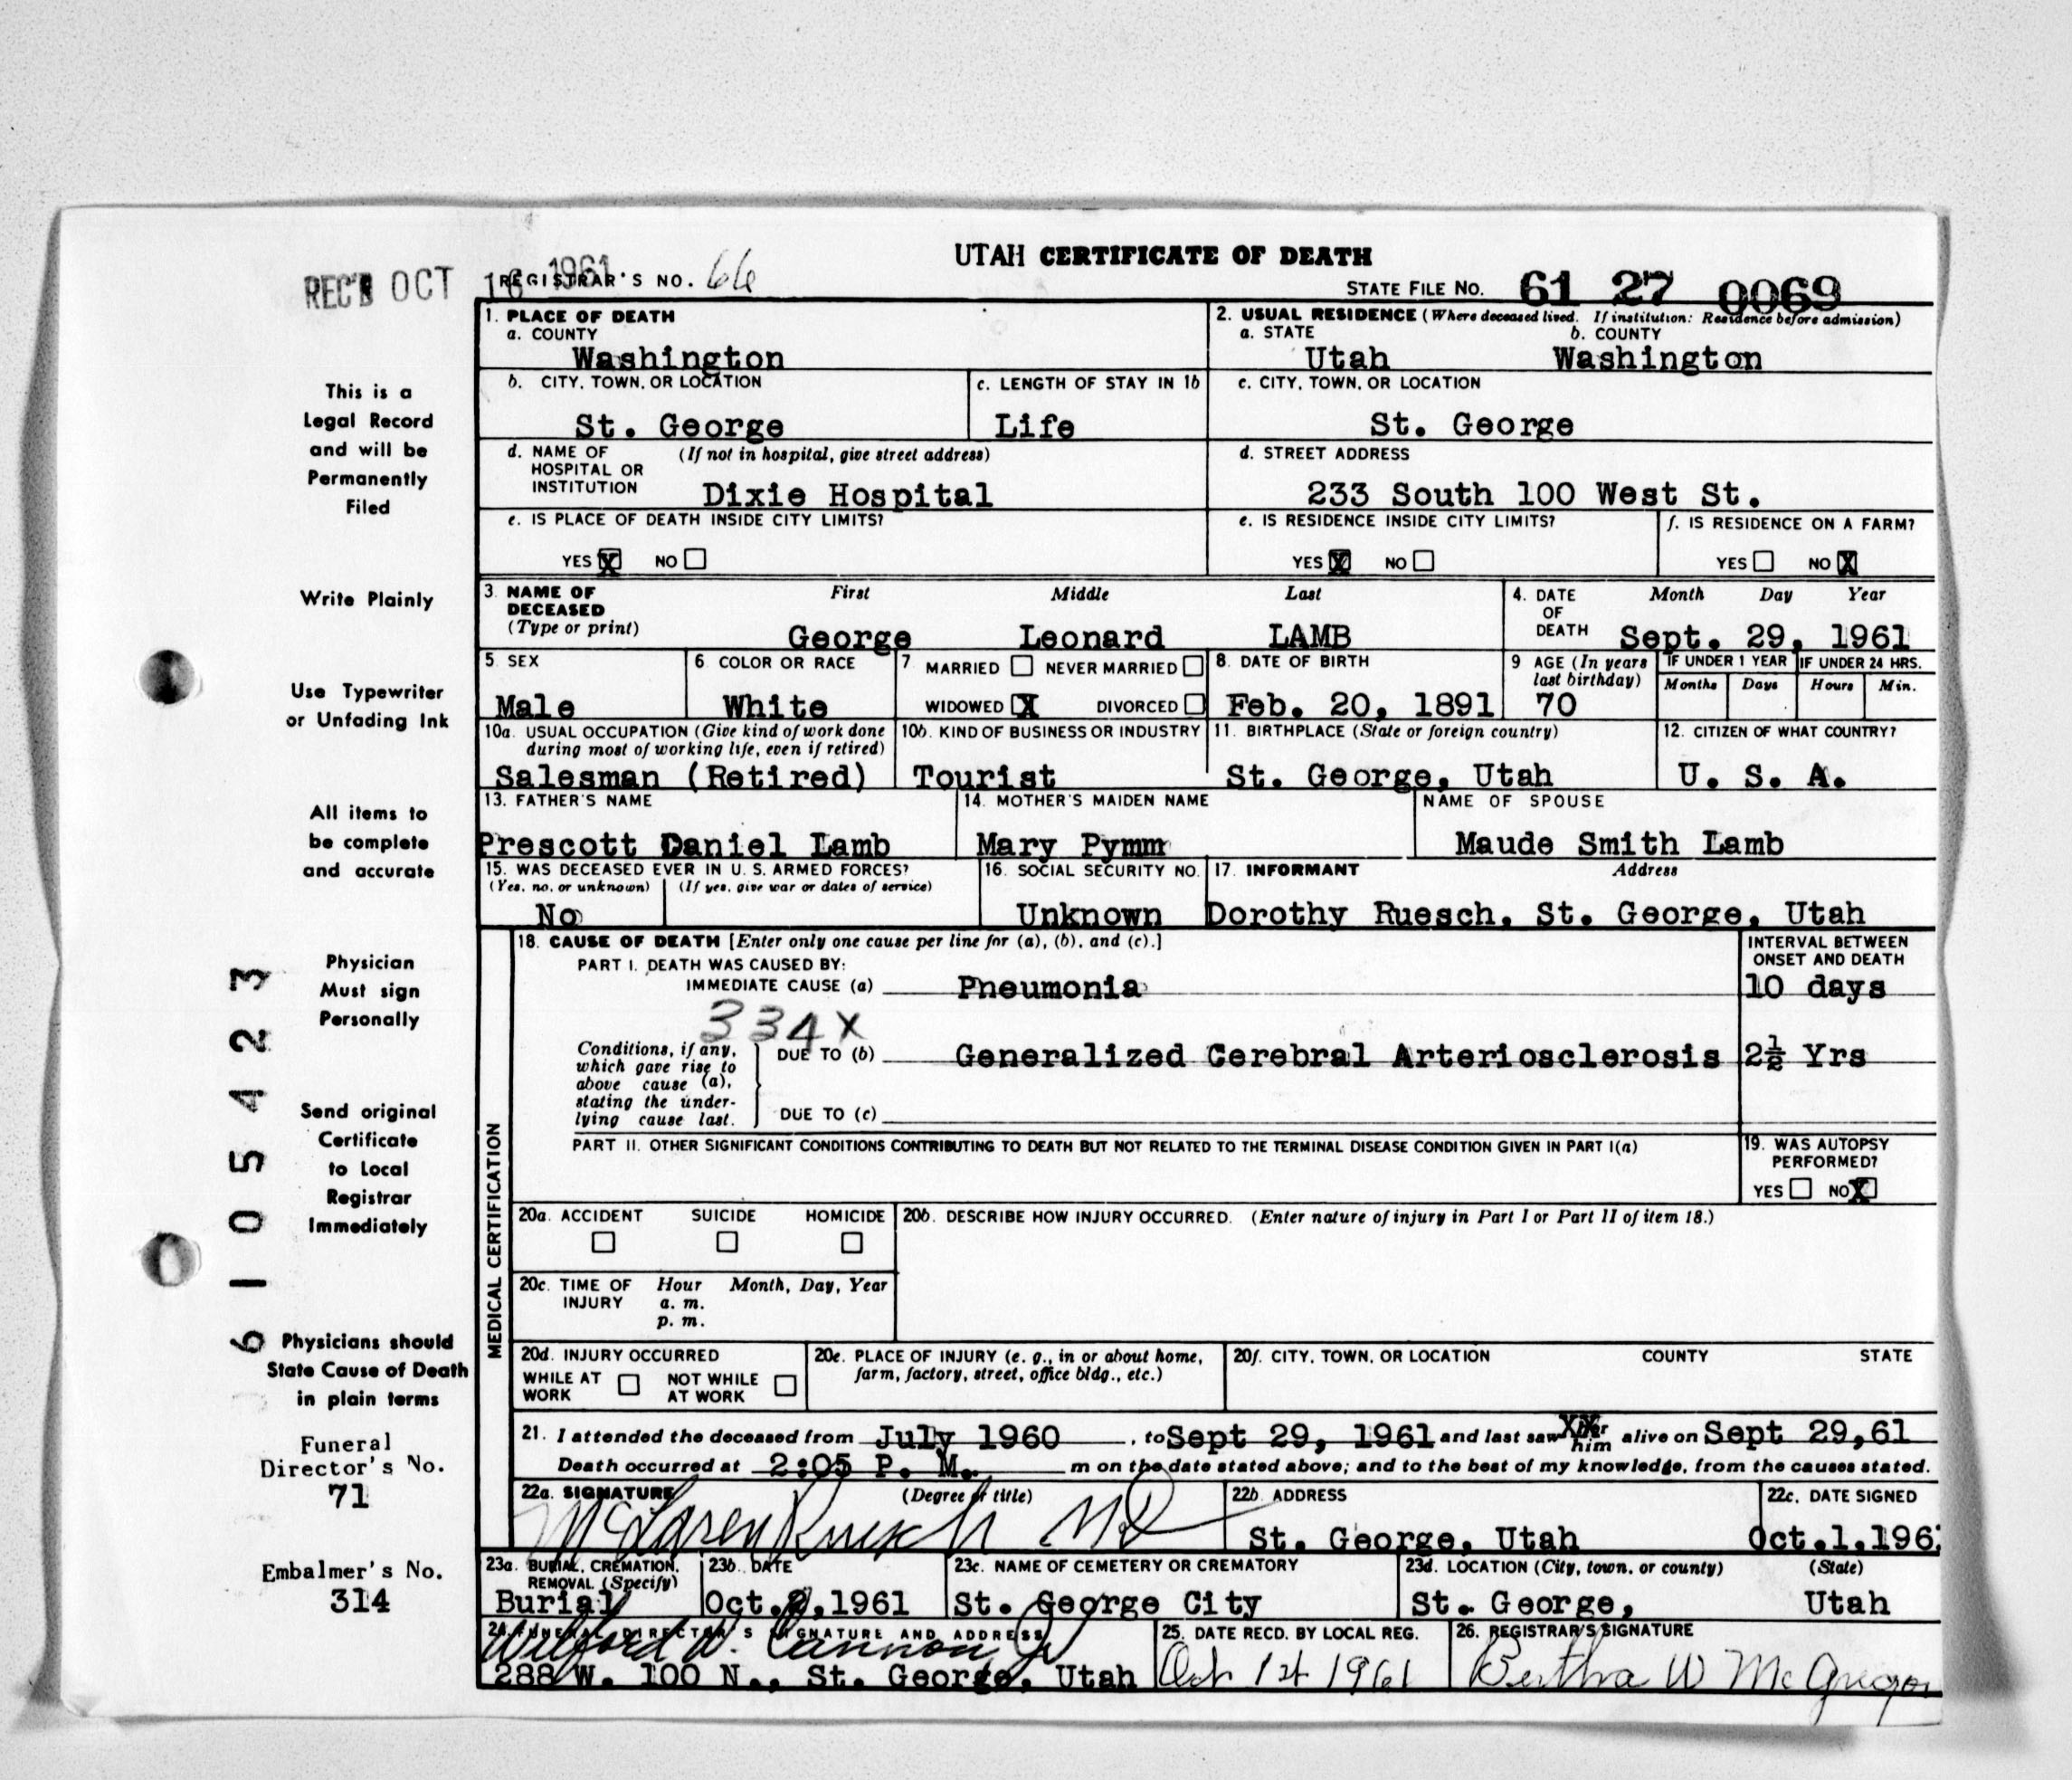 UTAH CERTIFICATE OF DEATH
REC'D OCT 16 1961
REGISTRAR'S NO. 66
STATE FILE NO. 61 27 0069
1. PLACE OF DEATH
a. COUNTY
Washington
2. USUAL RESIDENCE (Where deceased lived. If institution: Residence before admission)
a. STATE b. COUNTY
Utah Washington
b. CITY, TOWN, OR LOCATION
St. George
c. LENGTH OF STAY IN 1b
Life
c. CITY, TOWN, OR LOCATION
St. George
d. NAME OF (If not in hospital, give street address)
HOSPITAL OR
INSTITUTION Dixie Hospital
d. STREET ADDRESS
233 South 100 West St.
e. IS PLACE OF DEATH INSIDE CITY LIMITS?
YES X NO
e. IS RESIDENCE INSIDE CITY LIMITS?
YES X NO
f. IS RESIDENCE ON A FARM?
YES NO X
3. NAME OF First Middle Last
DECEASED
(Type or print) George Leonard LAMB
4. DATE Month Day Year
OF
DEATH Sept. 29, 1961
5. SEX
Male
6. COLOR OR RACE
White
7. MARRIED NEVER MARRIED
WIDOWED X DIVORCED
8. DATE OF BIRTH
Feb. 20, 1891
9 AGE (In years
last birthday)
70
IF UNDER 1 YEAR IF UNDER 24 HRS.
Months Days Hours Min.
10a. USUAL OCCUPATION (Give kind of work done
during most of working life, even if retired)
Salesman (Retired)
10b. KIND OF BUSINESS OR INDUSTRY
Tourist
11. BIRTHPLACE (State or foreign country)
St. George, Utah
12. CITIZEN OF WHAT COUNTRY?
U. S. A.
13. FATHER'S NAME
Prescott Daniel Lamb
14. MOTHER'S MAIDEN NAME
Mary Pymm
NAME OF SPOUSE
Maude Smith Lamb
15. WAS DECEASED EVER IN U. S. ARMED FORCES?
(Yes, no, or unknown) (If yes, give war or dates of service)
No
16. SOCIAL SECURITY NO.
Unknown
17. INFORMANT Address
Dorothy Ruesch, St. George, Utah
MEDICAL CERTIFICATION
18. CAUSE OF DEATH [Enter only one cause per line for (a), (b), and (c).]
INTERVAL BETWEEN
ONSET AND DEATH
PART I. DEATH WAS CAUSED BY:
IMMEDIATE CAUSE (a) Pneumonia 10 days
334X
Conditions, if any,
which gave rise to
above cause (a),
stating the under-
lying cause last.
DUE TO (b) Generalized Cerebral Arteriosclerosis 2½ Yrs
DUE TO (c)
PART II. OTHER SIGNIFICANT CONDITIONS CONTRIBUTING TO DEATH BUT NOT RELATED TO THE TERMINAL DISEASE CONDITION GIVEN IN PART I(a)
19. WAS AUTOPSY
PERFORMED?
YES NO X
20a. ACCIDENT SUICIDE HOMICIDE
20b. DESCRIBE HOW INJURY OCCURRED. (Enter nature of injury in Part I or Part II of item 18.)
20c. TIME OF Hour Month, Day, Year
INJURY a. m.
p. m.
20d. INJURY OCCURRED
WHILE AT NOT WHILE
WORK AT WORK
20e. PLACE OF INJURY (e. g., in or about home,
farm, factory, street, office bldg., etc.)
20f. CITY, TOWN, OR LOCATION COUNTY STATE
21. I attended the deceased from July 1960, to Sept 29, 1961 and last saw him alive on Sept 29,61
Death occurred at 2:05 P. M. m on the date stated above; and to the best of my knowledge, from the causes stated.
22a. SIGNATURE (Degree or title)
McLaren Ruesch MD
22b. ADDRESS
St. George, Utah
22c. DATE SIGNED
Oct.1,1961
23a. BURIAL, CREMATION,
REMOVAL (Specify)
Burial
23b. DATE
Oct.2,1961
23c. NAME OF CEMETERY OR CREMATORY
St. George City
23d. LOCATION (City, town, or county) (State)
St. George, Utah
24. FUNERAL DIRECTOR'S SIGNATURE AND ADDRESS
Wilford W. Cannon Jr
288 W. 100 N., St. George, Utah
25. DATE RECD. BY LOCAL REG.
Oct 14 1961
26. REGISTRAR'S SIGNATURE
Bertha W McGregor
This is a
Legal Record
and will be
Permanently
Filed
Write Plainly
Use Typewriter
or Unfading Ink
All items to
be complete
and accurate
Physician
Must sign
Personally
Send original
Certificate
to Local
Registrar
Immediately
Physicians should
State Cause of Death
in plain terms
Funeral
Director's No.
71
Embalmer's No.
314
61 05423